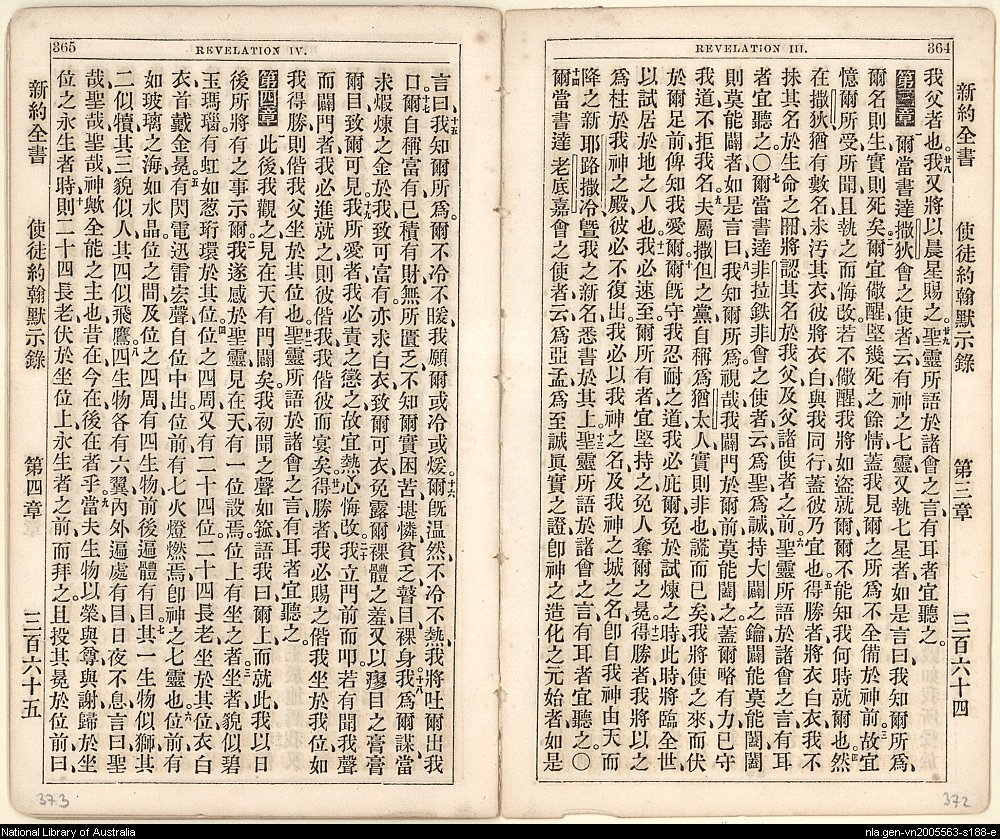 REVELATION III.
364
新約全書 使徒約翰默示錄 第三章 三百六十四
我父者也、廿八我又將以晨星賜之。廿九聖靈所語於諸會之言、有耳者宜聽之。
第三章 一爾當書達撒狄會之使者云、有神之七靈又執七星者、如是言曰、我知爾所爲、
爾名則生、實則死矣。二爾宜儆醒、堅幾死之餘情、蓋我見爾之所爲、不全備於神前。三故宜
憶爾所受所聞、且執之而悔改、若不儆醒、我將如盜就爾、爾不能知我何時就爾也。四然
在撒狄猶有數名、未污其衣、彼將衣白與我同行、蓋彼乃宜也。五得勝者將衣白衣、我不
抹其名於生命之冊、將認其名於我父及父諸使者之前。六聖靈所語於諸會之言、有耳
者宜聽之。〇七爾當書達非拉鉄非會之使者云、爲聖爲誠、持大闢之鑰、闢能莫能闔、闔
則莫能闢者、如是言曰、八我知爾所爲、視哉、我闢門於爾前、莫能闔之、蓋爾略有力、已守
我道、不拒我名。九夫屬撒但之黨、自稱爲猶太人、實則非也、謊而已矣、我將使之來而伏
於爾足前、俾知我愛爾。十爾旣守我忍耐之道、我必庇爾免於試煉之時、此時將臨全世、
以試居於地之人也。十一我必速至、爾所有者宜堅持之、免人奪爾之冕。十二得勝者、我將以之
爲柱於我神之殿、彼必不復出、我必以我神之名、及我神之城之名、卽自我神由天而
降之新耶路撒冷、曁我之新名、悉書於其上。十三聖靈所語於諸會之言、有耳者宜聽之。〇
十四爾當書達老底嘉會之使者云、爲亞孟、爲至誠眞實之證、卽神之造化之元始者、如是
372
REVELATION IV.
365
言曰、十五我知爾所爲。爾不冷不暖、我願爾或冷或煖。十六爾旣温然、不冷不熱、我將吐爾出我
口。十七爾自稱富有、已積有財、無所匱乏、不知爾實困苦、堪憐、貧乏、瞽目、裸身、十八我爲爾謀、當
求煆煉之金於我、致可富有、亦求白衣、致爾可衣、免露爾裸體之羞、又以瘳目之膏膏
爾目、致爾可見。十九我所愛者、我必責之懲之、故宜熱心悔改。二十我立門前而叩、若有聞我聲
而闢門者、我必進就之、則彼偕我、我偕彼而宴矣。廿一得勝者、我必賜之偕我坐於我位、如
我得勝、則偕我父坐於其位也。廿二聖靈所語於諸會之言、有耳者宜聽之。
第四章 一此後我觀之、見在天有門闢矣。我初聞之聲如箛、語我曰、爾上而就此、我以日
後所將有之事示爾。二我遂感於聖靈、見在天有一位設焉。位上有坐之者。三坐者貌似碧
玉瑪瑙、有虹如葱珩環於其位。四位之四周、又有二十四位。二十四長老、坐於其位、衣白
衣、首戴金冕。五有閃電迅雷宏聲自位中出、位前有七火燈燃焉、卽神之七靈也。六位前有
如玻璃之海、如水晶、位之間及位之四周、有四生物、前後遍體有目。七其一生物似獅、其
二似犢、其三貌似人、其四似飛鷹。八四生物各有六翼、內外遍處有目、日夜不息言曰、聖
哉、聖哉、聖哉、神、歟全能之主也、昔在今在後在者乎。九當夫生物以榮與尊與謝、歸於坐
位之永生者時、十則二十四長老、伏於坐位上永生者之前而拜之、且投其冕於位前曰、
新約全書 使徒約翰默示錄 第四章 三百六十五
373
National Library of Australia
nla.gen-vn2005563-s188-e